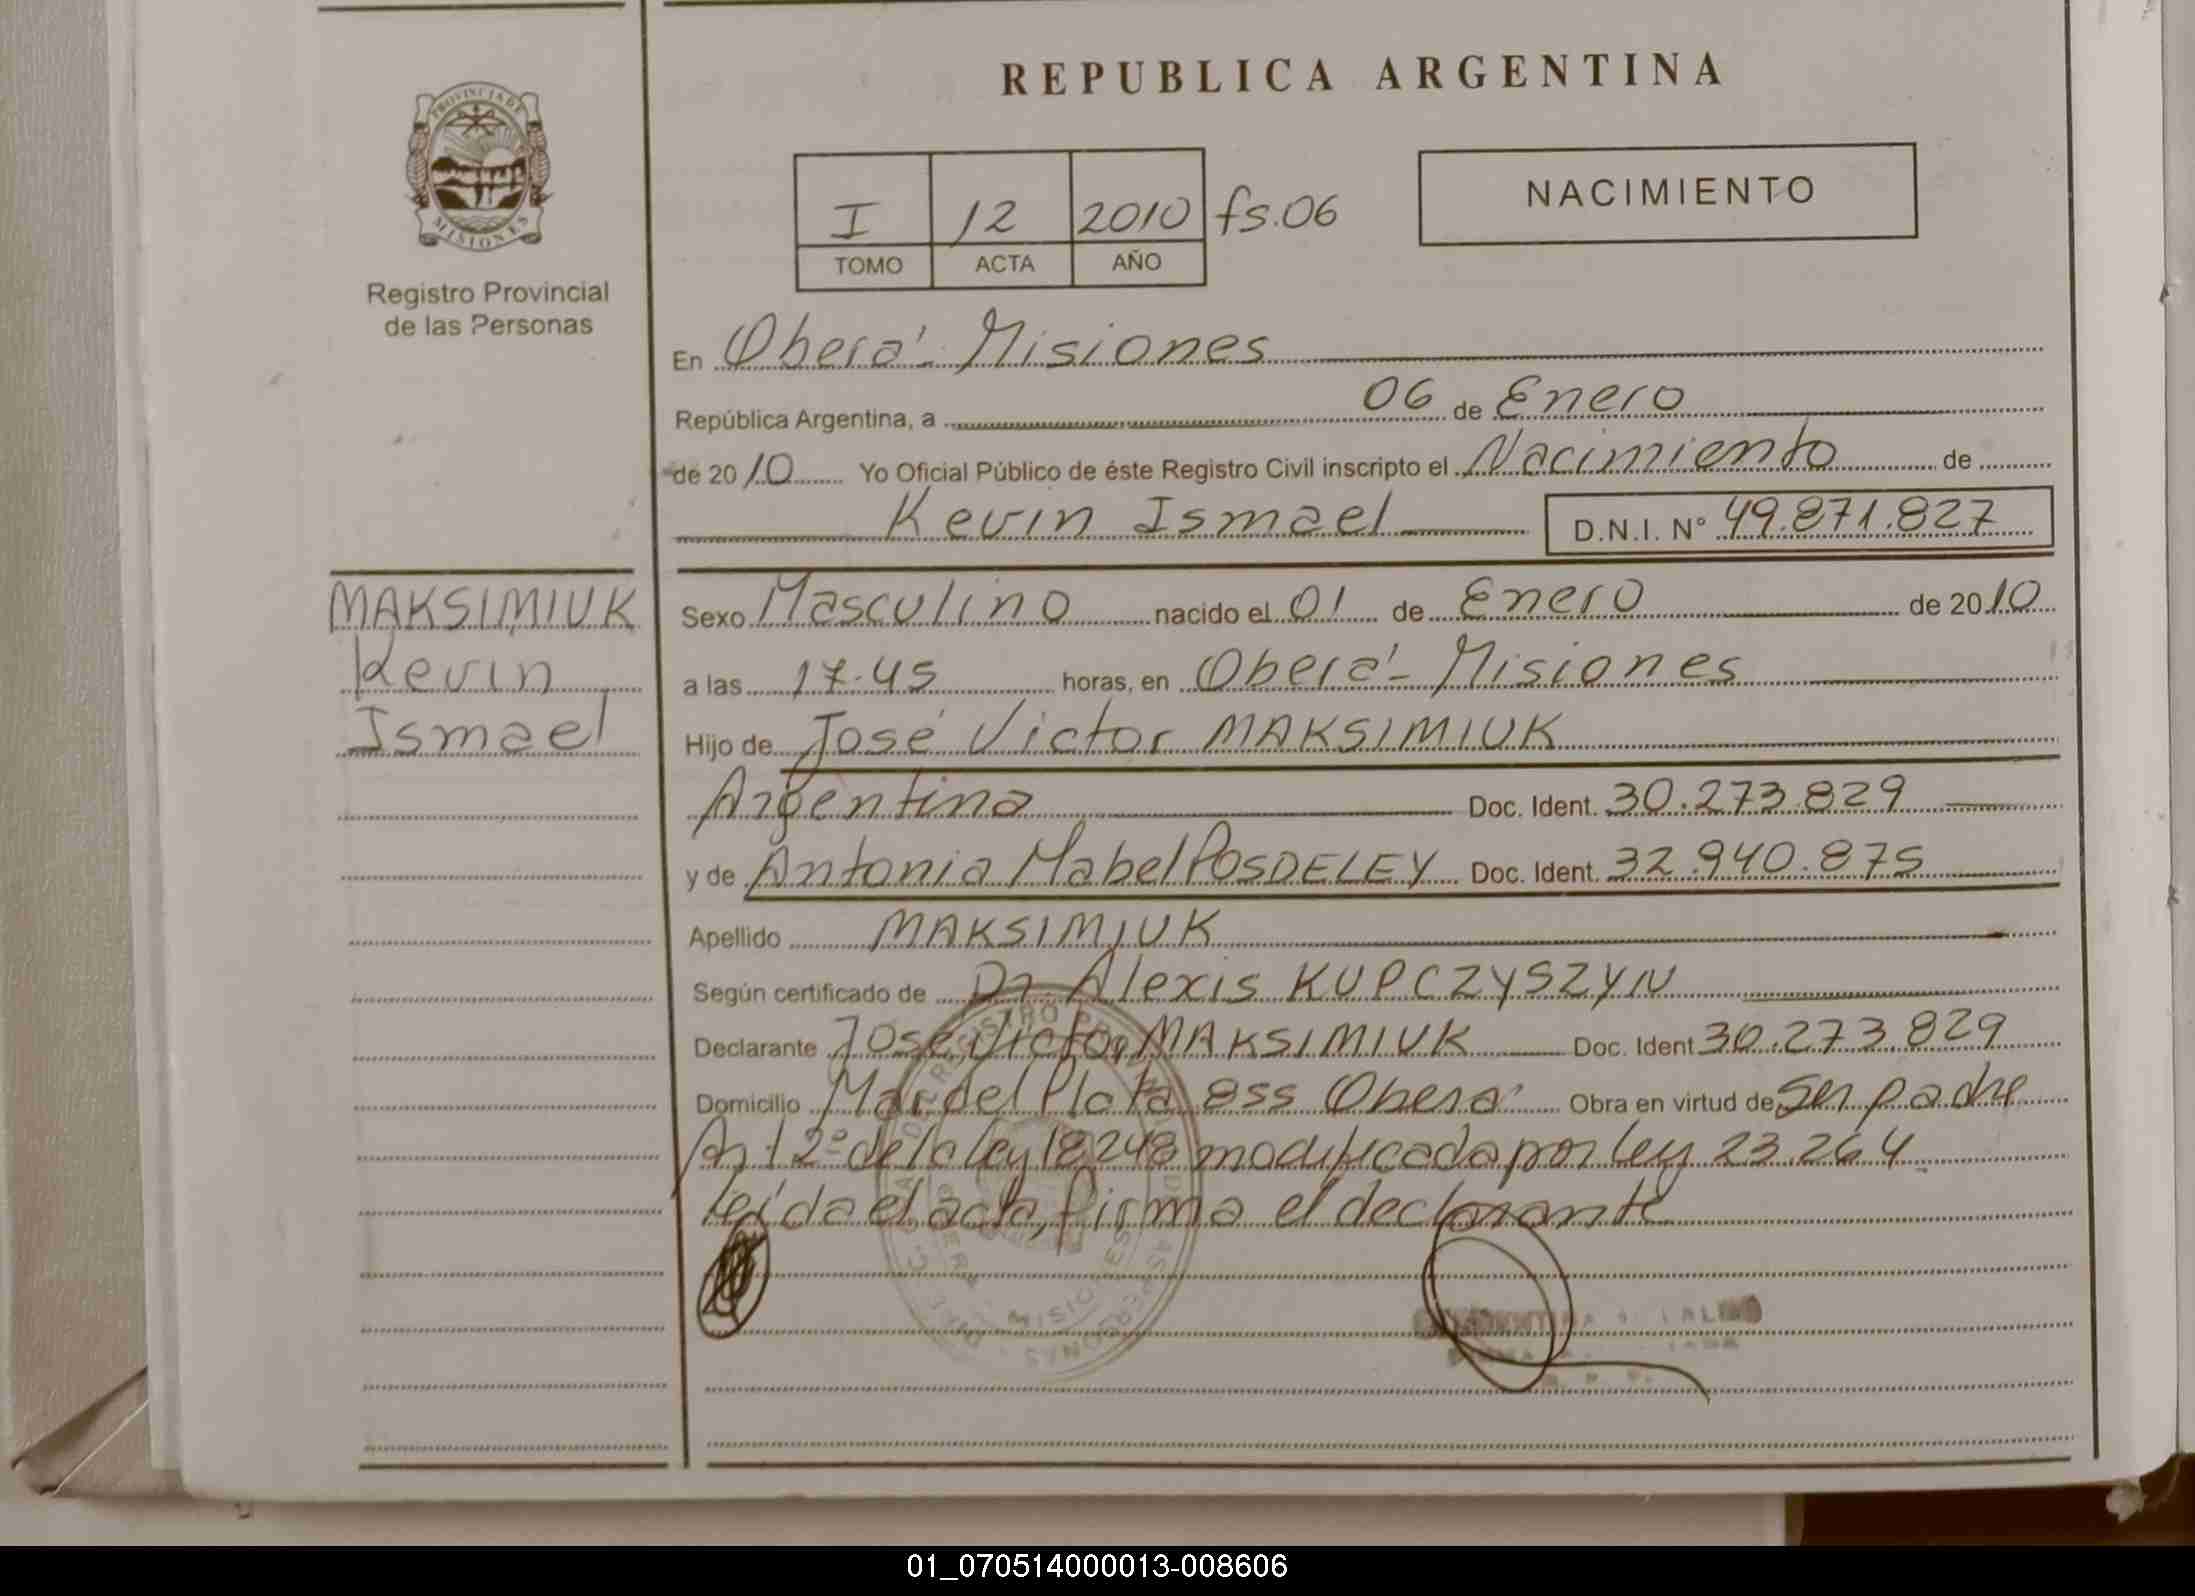 REPUBLICA ARGENTINA
PROVINCIA DE
MISIONES
Registro Provincial
de las Personas
I 12 2010 fs.06
TOMO ACTA AÑO
NACIMIENTO
En Oberá - Misiones
República Argentina, a 06 de Enero
de 2010 Yo Oficial Público de éste Registro Civil inscripto el Nacimiento de
Kevin Ismael D.N.I. Nº 49.871.827
MAKSIMIUK
Kevin
Ismael
Sexo Masculino nacido el 01 de Enero de 2010
a las 17.45 horas, en Oberá - Misiones
Hijo de José Victor MAKSIMIUK
Argentina Doc. Ident. 30.273.829
y de Antonia Mabel POSDELEY Doc. Ident. 32.940.875
Apellido MAKSIMIUK
Según certificado de Dr. Alexis KUPCZYSZYN
Declarante José Victor MAKSIMIUK Doc. Ident 30.273.829
Domicilio Mar del Plata 855 Oberá Obra en virtud de Ser padre
Art 2º de la ley 18.248 modificada por ley 23.264
leída el acta, firma el declarante
01_070514000013-008606